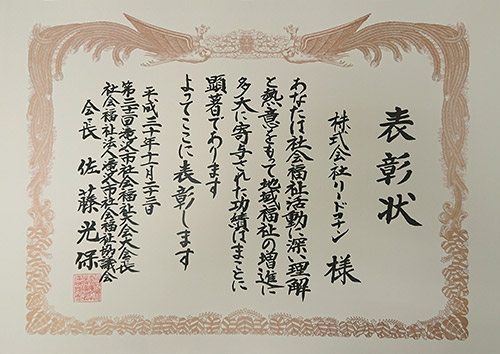 表彰状
株式会社リードコナン 様
あなたは社会福祉活動に深い理解
と熱意をもって地域福祉の増進に
多大に寄与された功績はまことに
顕著であります
よってここに表彰します
平成三十年十一月二十三日
第三十二回秩父市社会福祉大会大会長
社会福祉法人秩父市社会福祉協議会
会長 佐藤光保